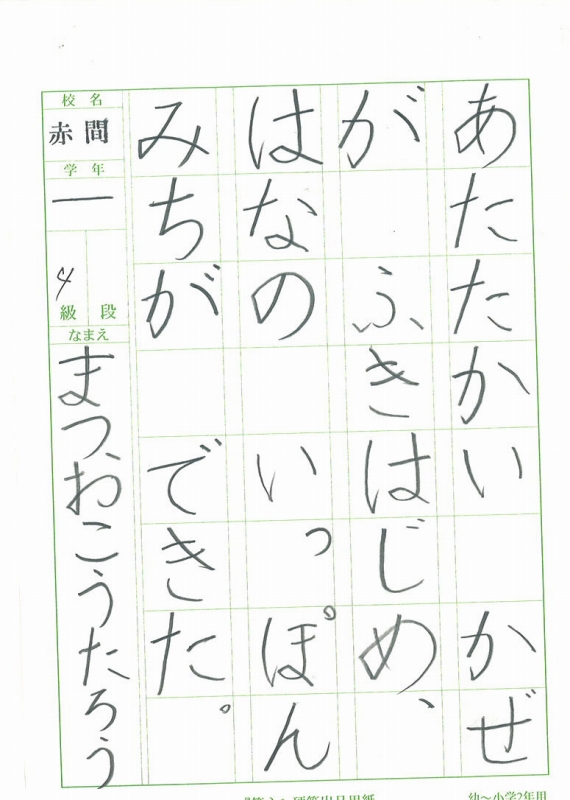 あたたかい　かぜ
が　ふきはじめ、
はなの　いっぽん
みちが　できた。
校名
赤間
学年
一
4
級 段
なまえ
まつおこうたろう
幼〜小学2年用